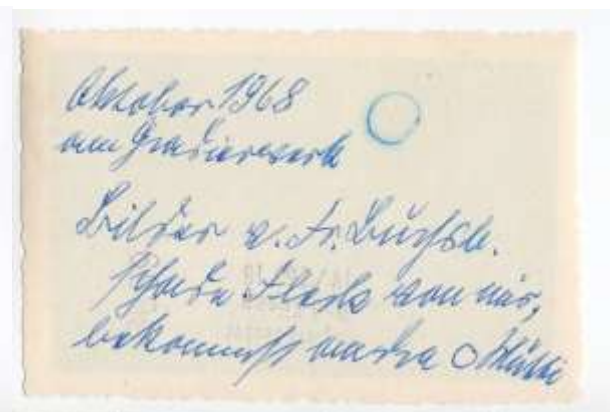 Oktober 1968
am Gradierwerk
Bilder v. Fr. Buchsb.
von mir,
bekommst andre Mutti